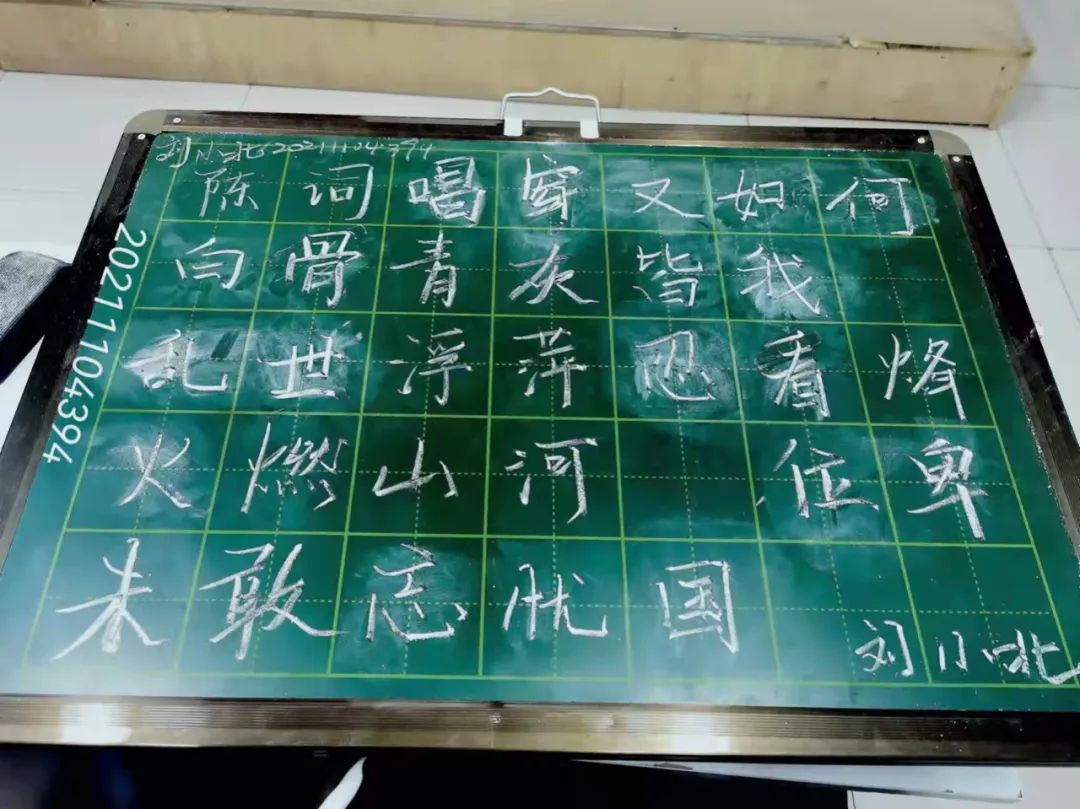 刘小 20211104394
陈词唱穿又如何
白骨青灰皆我
乱世浮萍忍看烽
火燃山河 位卑
未敢忘忧国
刘小
20211104394